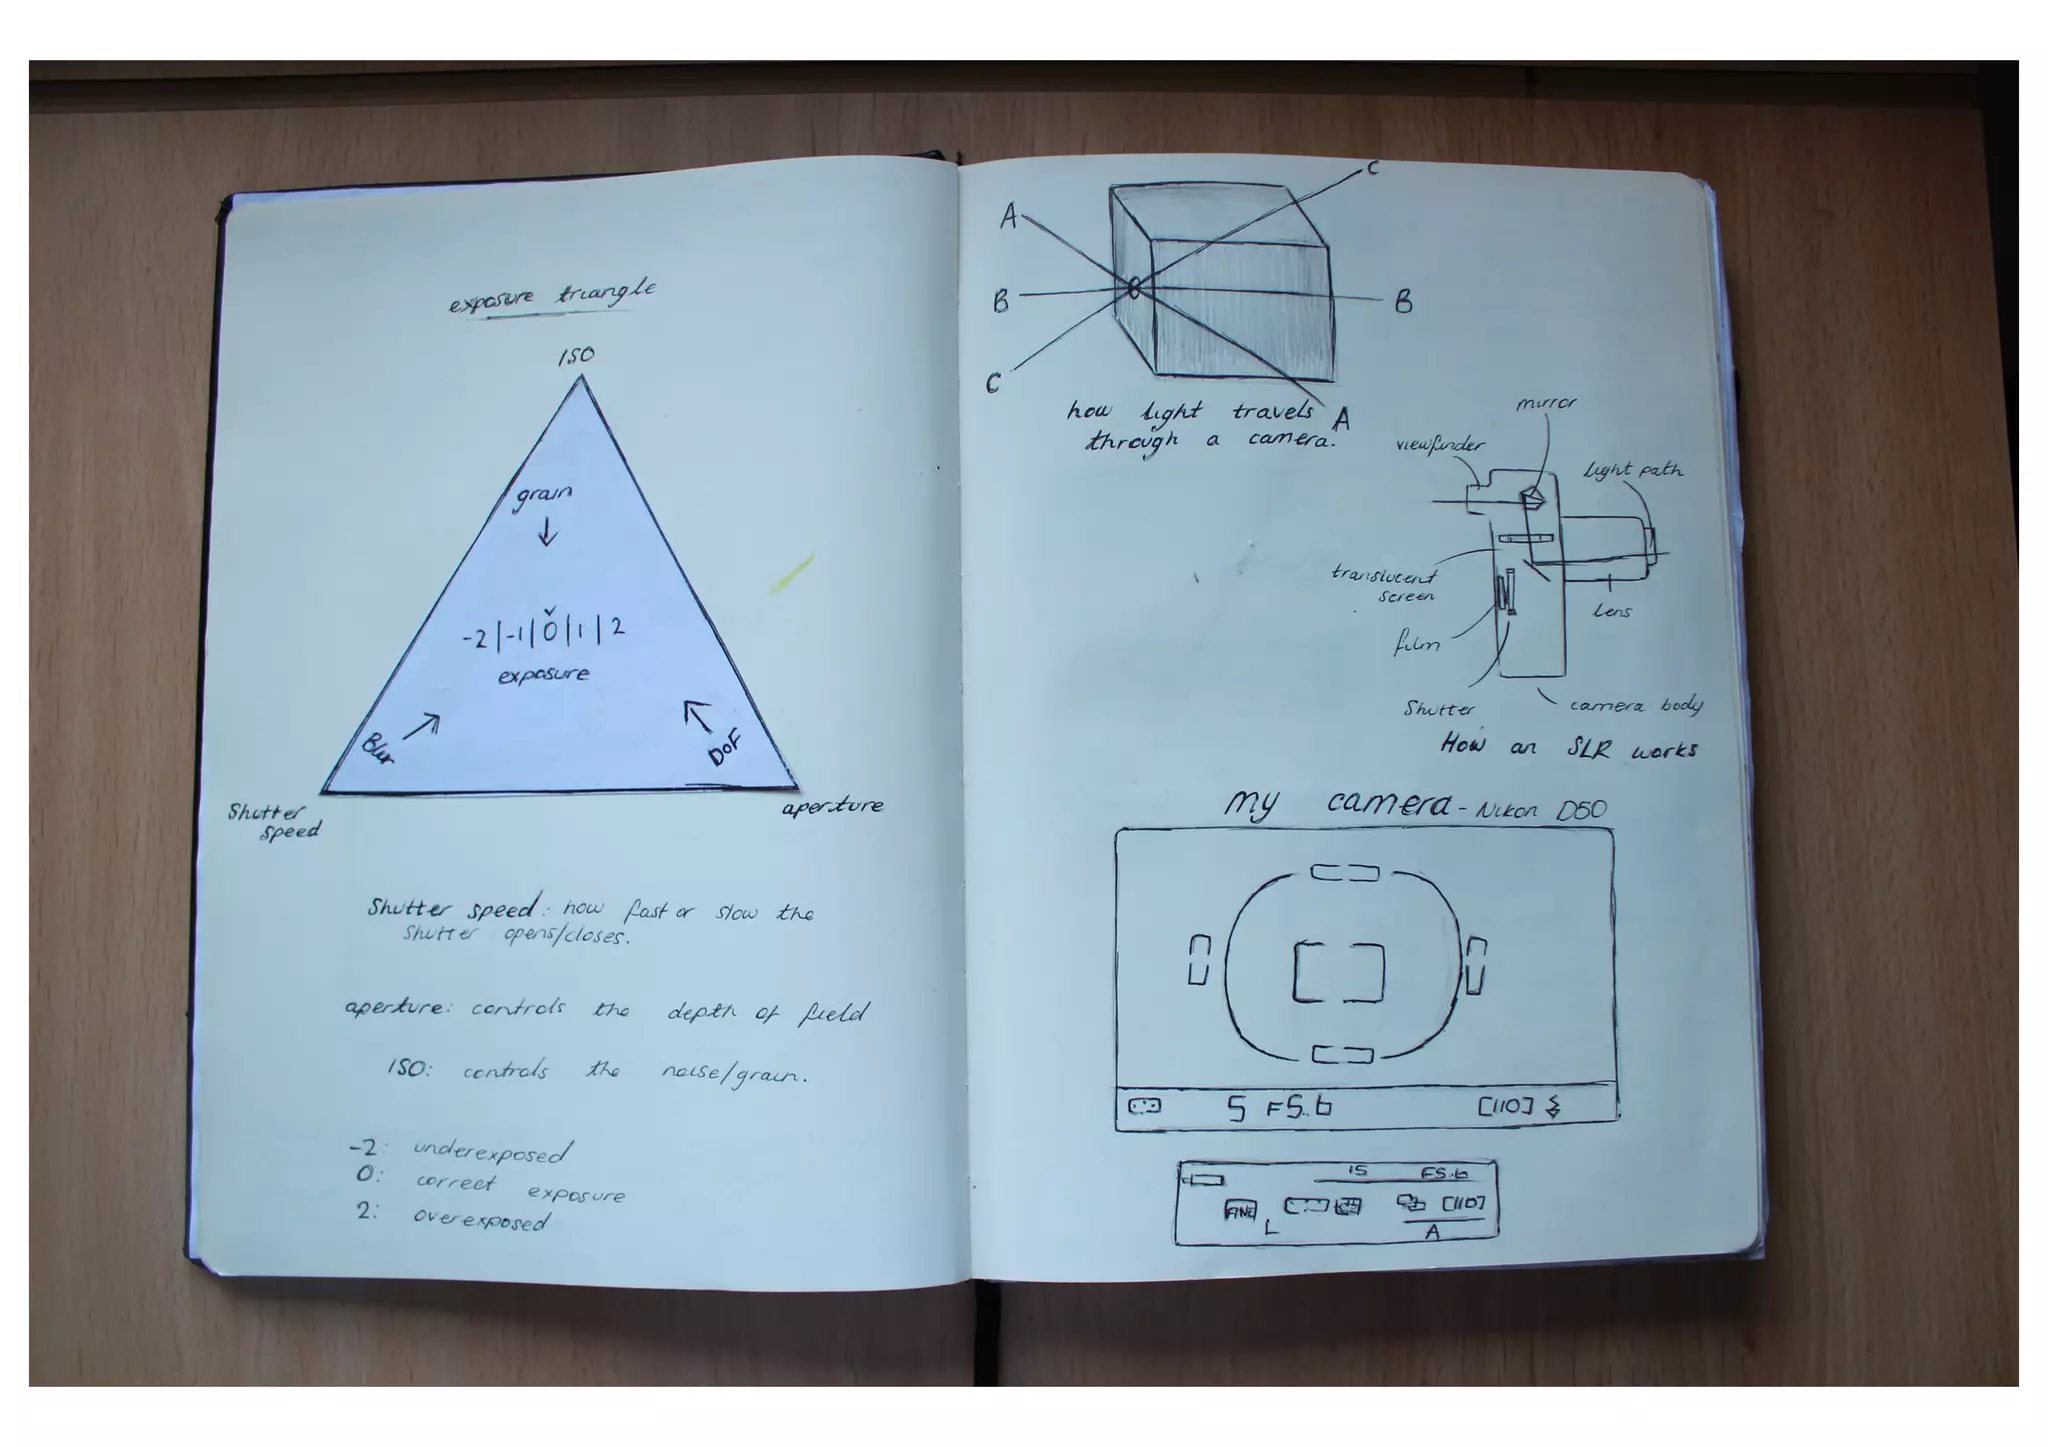 exposure triangle
ISO
grain
-2|-1|0|1|2
exposure
Blur
DoF
Shutter
speed
aperture
Shutter speed: how fast or slow the
shutter opens/closes.
aperture: controls the depth of field
ISO: controls the noise/grain.
-2: underexposed
0: correct exposure
2: overexposed
C
A
B
B
C
A
how light travels
through a camera.
mirror
viewfinder
light path
translucent
screen
lens
film
Shutter
camera body
How an SLR works
my camera - Nikon D50
5 F5.6 [110]
15 F5.6
FINE
[110]
L
A